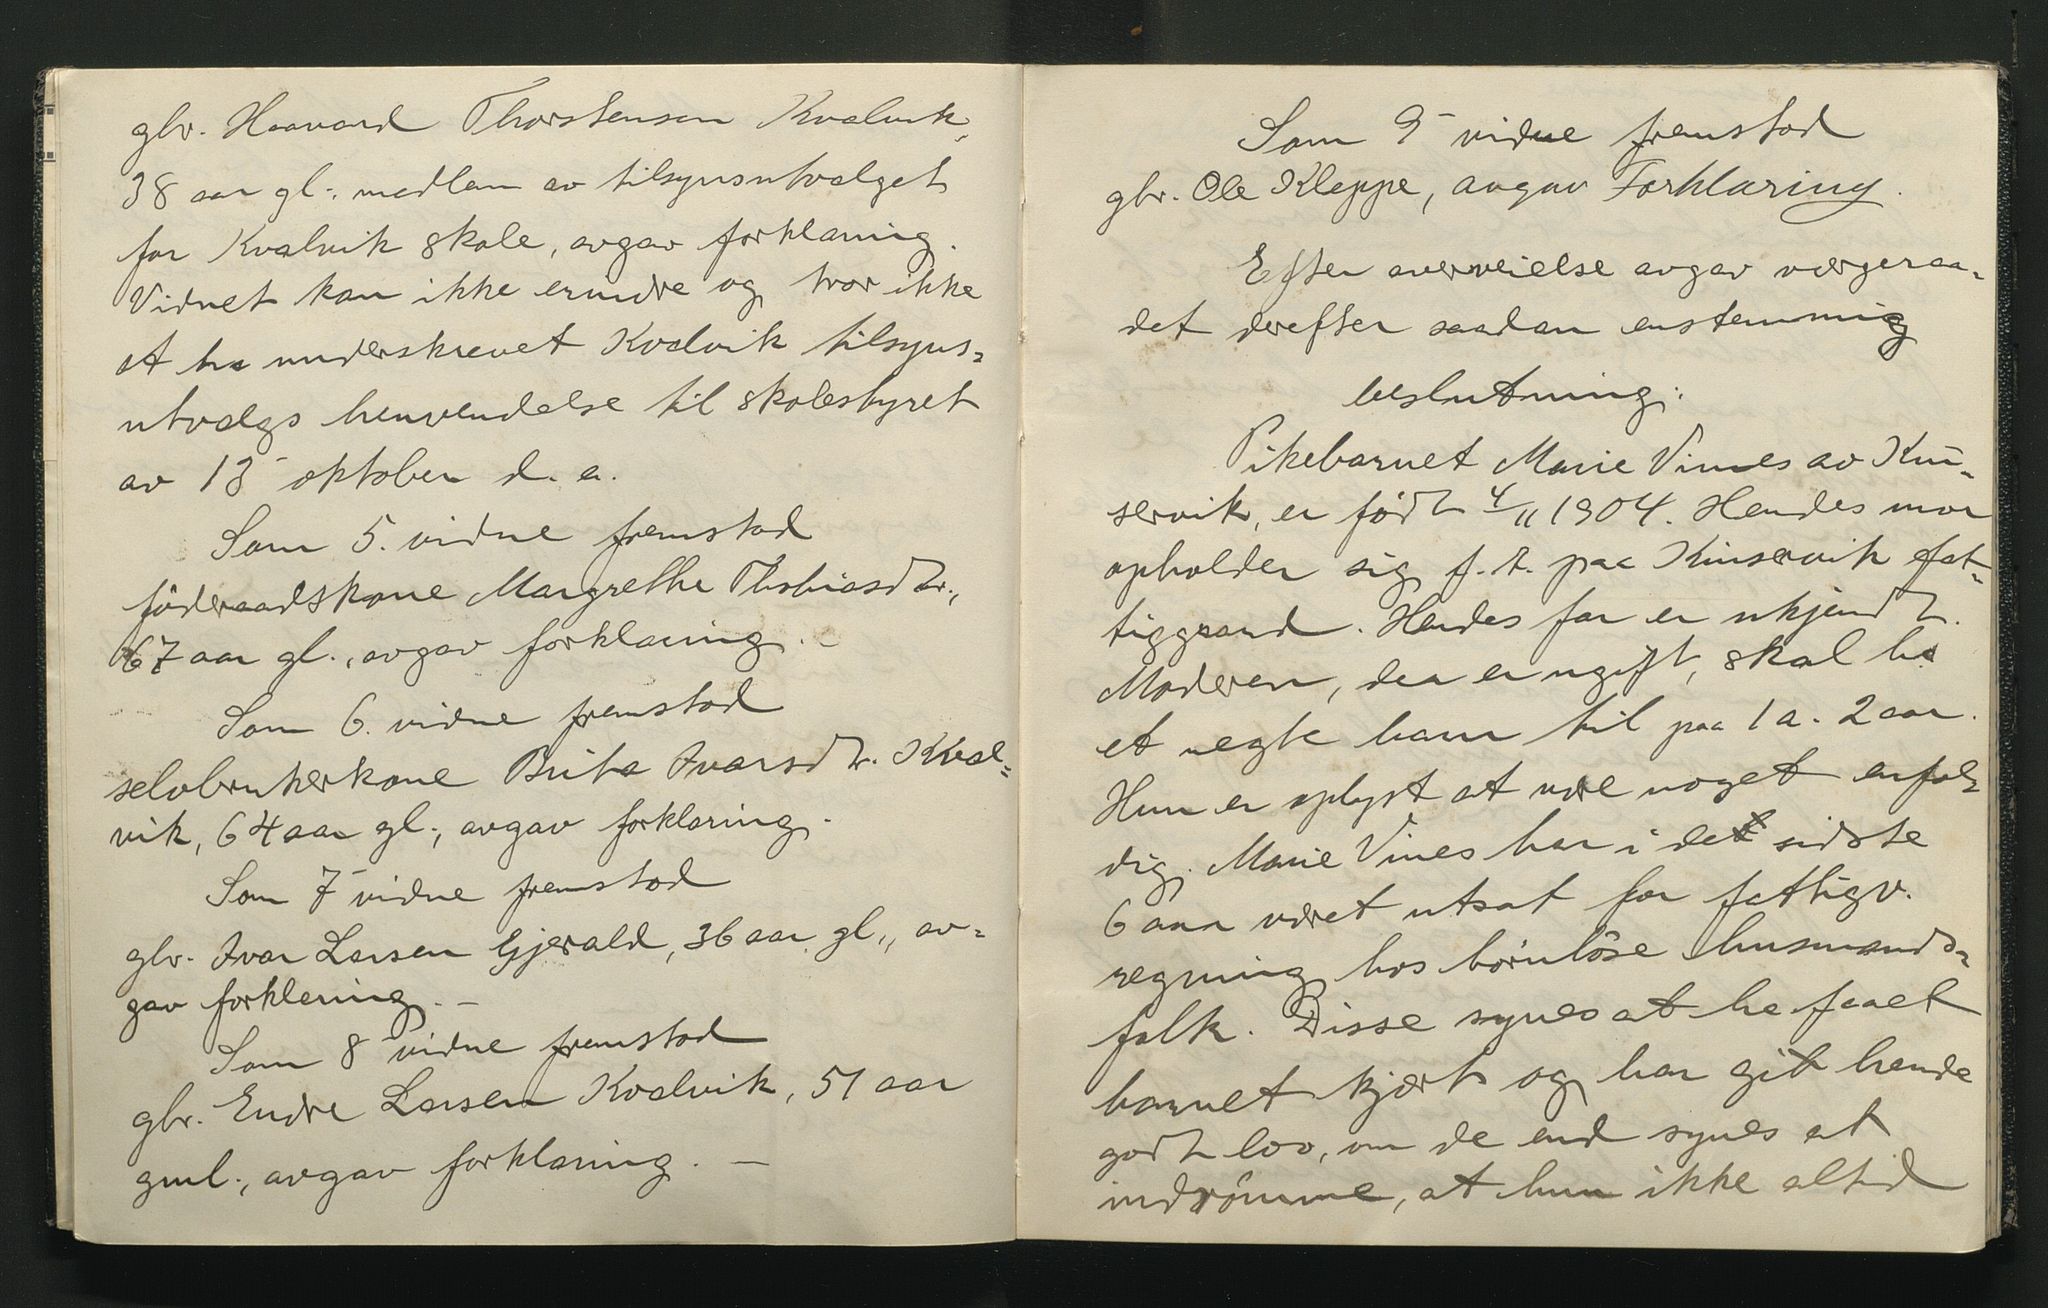 gbr. Haavard Thorstensen Kvalvik,
38 aar gl., medlem av tilsynsutvalget
for Kvalvik skole, avgav forklaring.
Vidnet kan ikke erindre og tror ikke
at ha underskrevet Kvalvik tilsyns=
utvalgs henvendelse til skolestyret
av 13 oktober d. a.
Som 5. vidne fremstod
föderaadskone Margrethe Thobiasdtr.,
67 aar gl., avgav forklaring. -
Som 6. vidne fremstod
selvbrukerkone Brita Ivarsdtr. Kval=
vik, 64 aar gl., avgav forklaring.
Som 7 vidne fremstod
gbr. Ivar Larsen Gjerald, 36 aar gl., av=
gav forklaring. -
Som 8 vidne fremstod
gbr. Endre Larsen Kvalvik, 51 aar
gml., avgav forklaring. -
Som 9 vidne fremstod
gbr. Ole Kleppe, avgav Forklaring.
Efter overveielse avgav værgeraa=
det derefter saadan enstemmig
beslutning:
Pikebarnet Marie Vines av Kin=
servik, er födt 4/11 1904. Hendes mor
opholder sig f. t. paa Kinservik fat=
tiggaard. Hendes far er ukjendt.
Moderen, der er ugift, skal ha
et uegte barn til paa 1 a. 2 aar.
Hun er oplyst at være noget enfol=
dig. Marie Vines har i de sidste
6 aar været utsat for fattigv.
regning hos börnlöse husmands=
folk. Disse synes at ha faaet
barnet kjært og har git hende
godt lov, om de end synes at
indrömme, at hun ikke altid